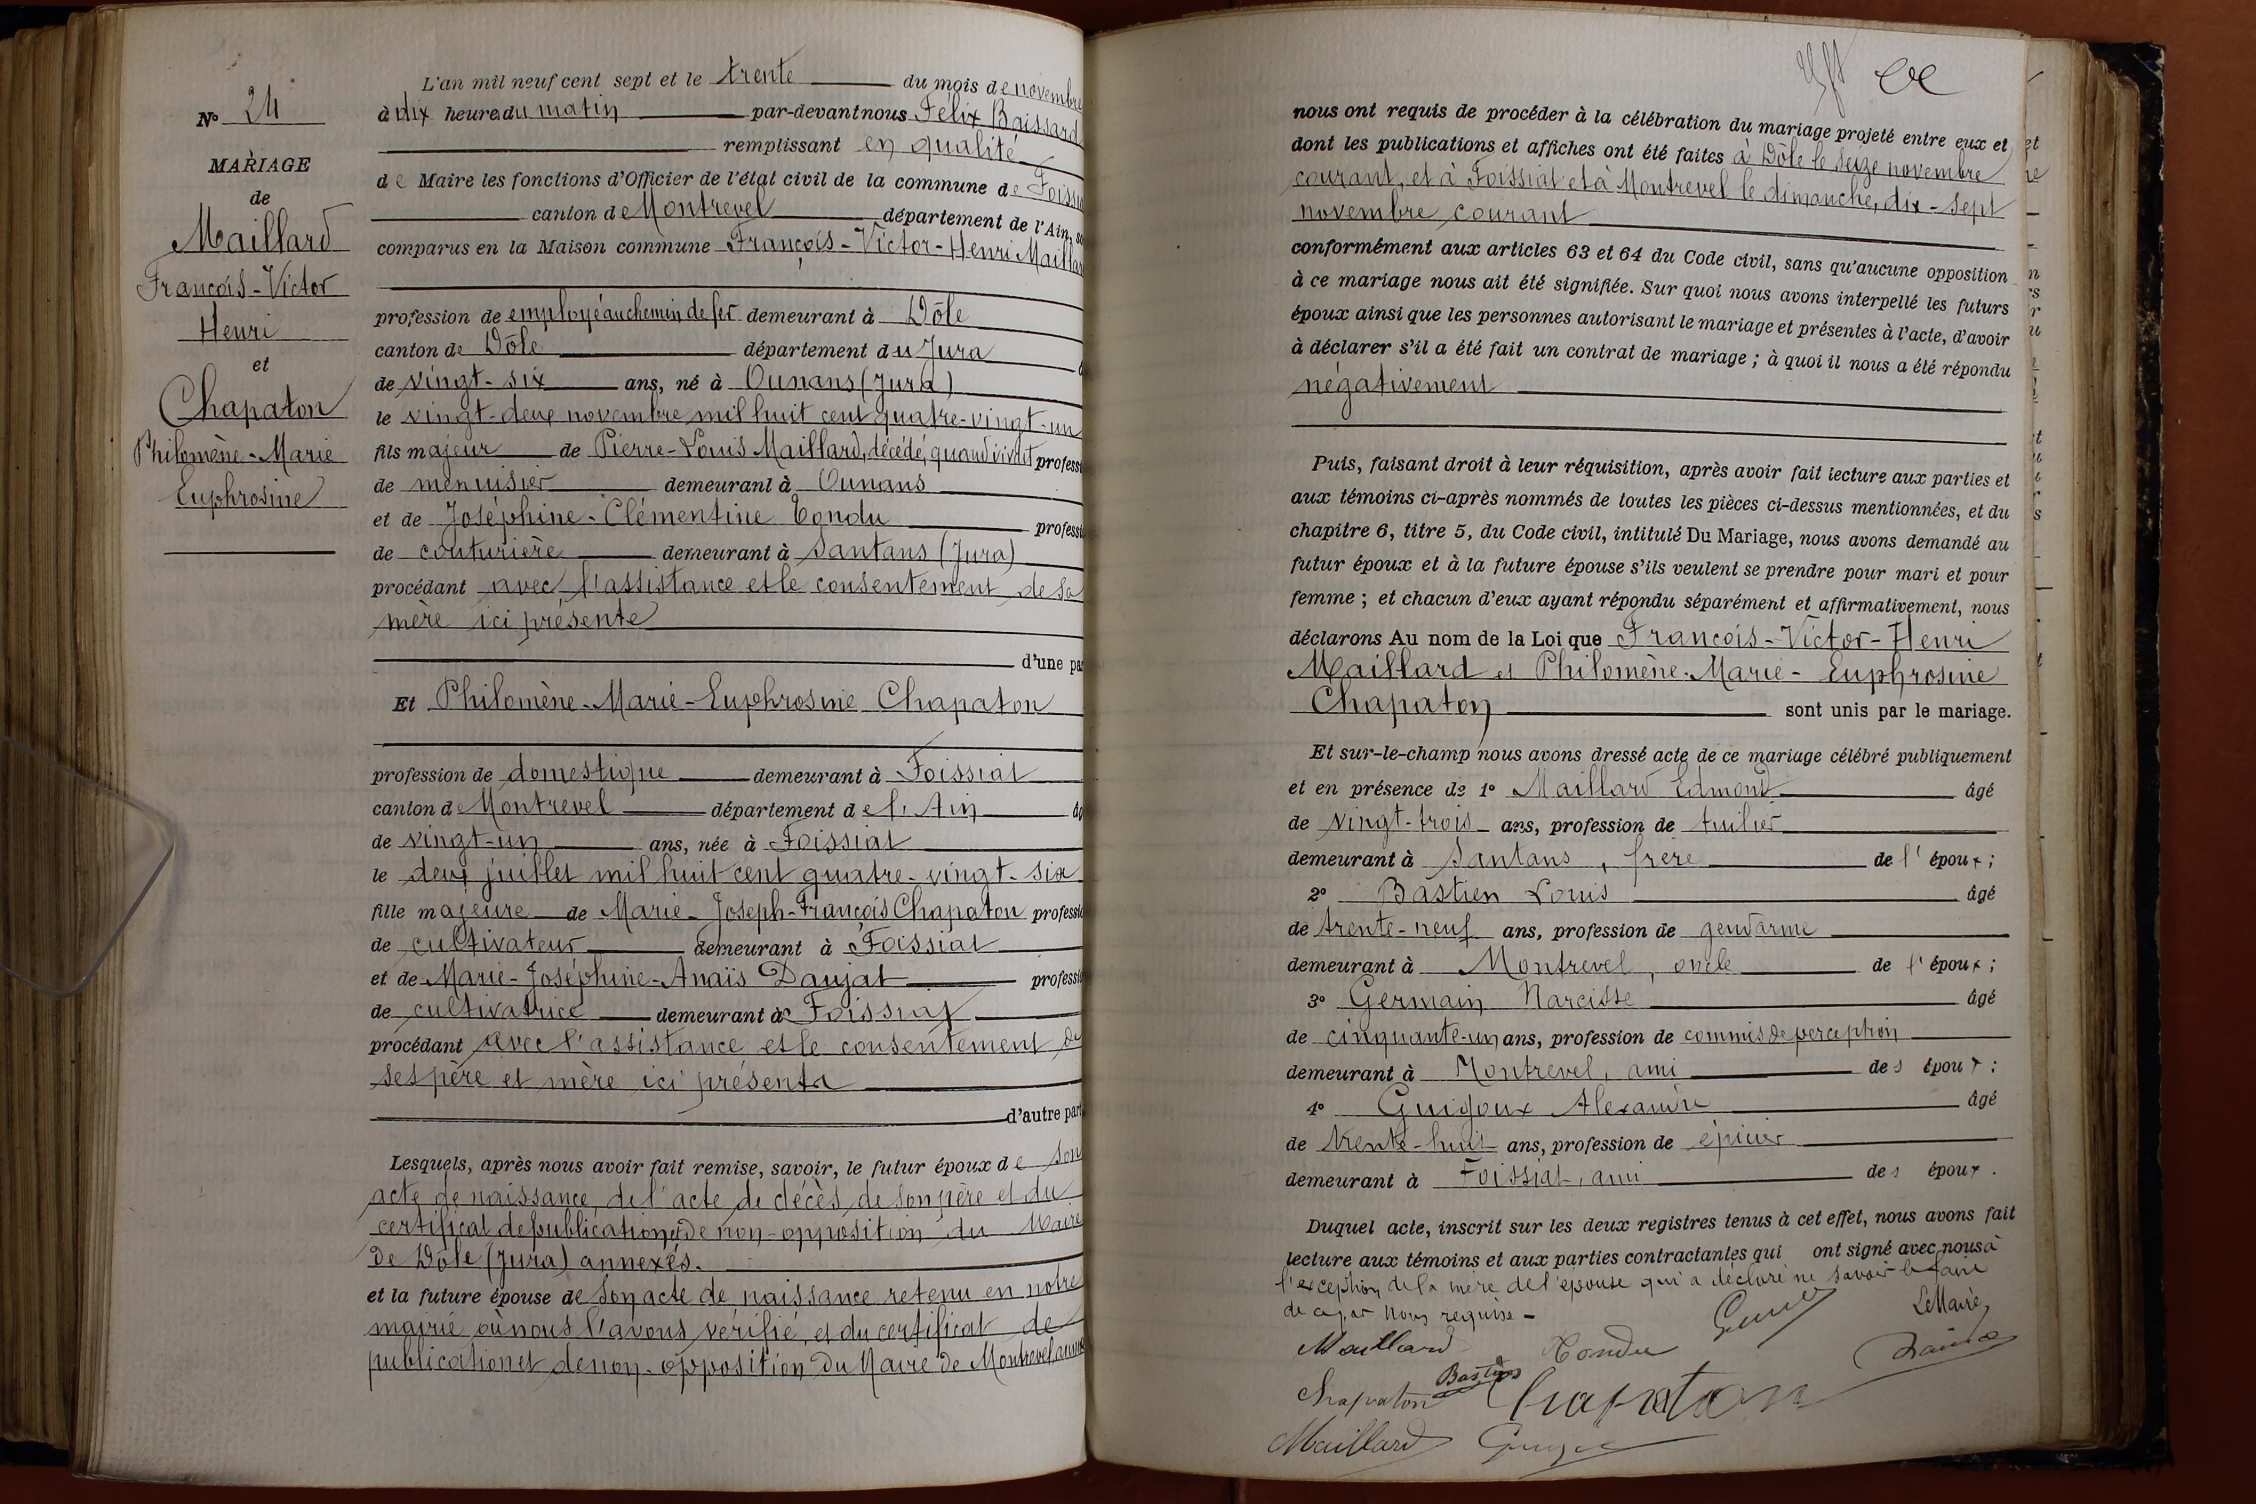 N° 24
MARIAGE
de
Maillard
François-Victor
Henri
et
Chapaton
Philomène-Marie
Euphrosine
L'an mil neuf cent sept et le trente du mois de novembre
à dix heures du matin par-devant nous Félix Baissard
remplissant en qualité
de Maire les fonctions d'Officier de l'état civil de la commune de Foissia
canton de Montrevel département de l'Ain, so
comparus en la Maison commune François-Victor-Henri Maillar
profession de employé au chemin de fer demeurant à Dôle
canton de Dôle département du Jura
de vingt-six ans, né à Ounans (Jura)
le vingt-deux novembre mil huit cent quatre-vingt-un
fils majeur de Pierre-Louis Maillard, décédé, quand vivait professi
de menuisier demeurant à Ounans
et de Joséphine-Clémentine Tondu professi
de couturière demeurant à Santans (Jura)
procédant avec l'assistance et le consentement de sa
mère ici présente
d'une par
Et Philomène-Marie-Euphrosine Chapaton
profession de domestique demeurant à Foissiat
canton de Montrevel département de l'Ain âg
de vingt-un ans, née à Foissiat
le deux juillet mil huit cent quatre-vingt-six
fille majeure de Marie-Joseph-François Chapaton professio
de cultivateur demeurant à Foissiat
et de Marie-Joséphine-Anaïs Daujat professio
de cultivatrice demeurant à Foissiat
procédant avec l'assistance et le consentement de
ses père et mère ici présents
d'autre part
Lesquels, après nous avoir fait remise, savoir, le futur époux de son
acte de naissance, de l'acte de décès de son père et du
certificat de publication et de non-opposition du Maire
de Dôle (Jura) annexés.
et la future épouse de son acte de naissance retenu en notre
mairie où nous l'avons vérifié, et du certificat de
publication et de non-opposition du Maire de Montrevel
nous ont requis de procéder à la célébration du mariage projeté entre eux et
dont les publications et affiches ont été faites à Dôle le seize novembre
courant, et à Foissiat et à Montrevel le dimanche, dix-sept
novembre courant
conformément aux articles 63 et 64 du Code civil, sans qu'aucune opposition
à ce mariage nous ait été signifiée. Sur quoi nous avons interpellé les futurs
époux ainsi que les personnes autorisant le mariage et présentes à l'acte, d'avoir
à déclarer s'il a été fait un contrat de mariage ; à quoi il nous a été répondu
négativement
Puis, faisant droit à leur réquisition, après avoir fait lecture aux parties et
aux témoins ci-après nommés de toutes les pièces ci-dessus mentionnées, et du
chapitre 6, titre 5, du Code civil, intitulé Du Mariage, nous avons demandé au
futur époux et à la future épouse s'ils veulent se prendre pour mari et pour
femme ; et chacun d'eux ayant répondu séparément et affirmativement, nous
déclarons Au nom de la Loi que François-Victor-Henri
Maillard et Philomène-Marie-Euphrosine
Chapaton sont unis par le mariage.
Et sur-le-champ nous avons dressé acte de ce mariage célébré publiquement
et en présence de 1° Maillard Edmond âgé
de vingt-trois ans, profession de tuilier
demeurant à Santans, frère de l'époux ;
2° Bastien Louis âgé
de trente-neuf ans, profession de gendarme
demeurant à Montrevel, oncle de l'époux ;
3° Germain Narcisse âgé
de cinquante-un ans, profession de commis de perception
demeurant à Montrevel, ami des époux ;
4° Guigoux Alexandre âgé
de trente-huit ans, profession de épicier
demeurant à Foissiat, ami des époux.
Duquel acte, inscrit sur les deux registres tenus à cet effet, nous avons fait
lecture aux témoins et aux parties contractantes qui ont signé avec nous à
l'exception de la mère de l'épouse qui a déclaré ne savoir le faire
de ce par nous requise -
Le Maire,
Maillard Tondu
Bastien
Chapaton Chapaton
Maillard